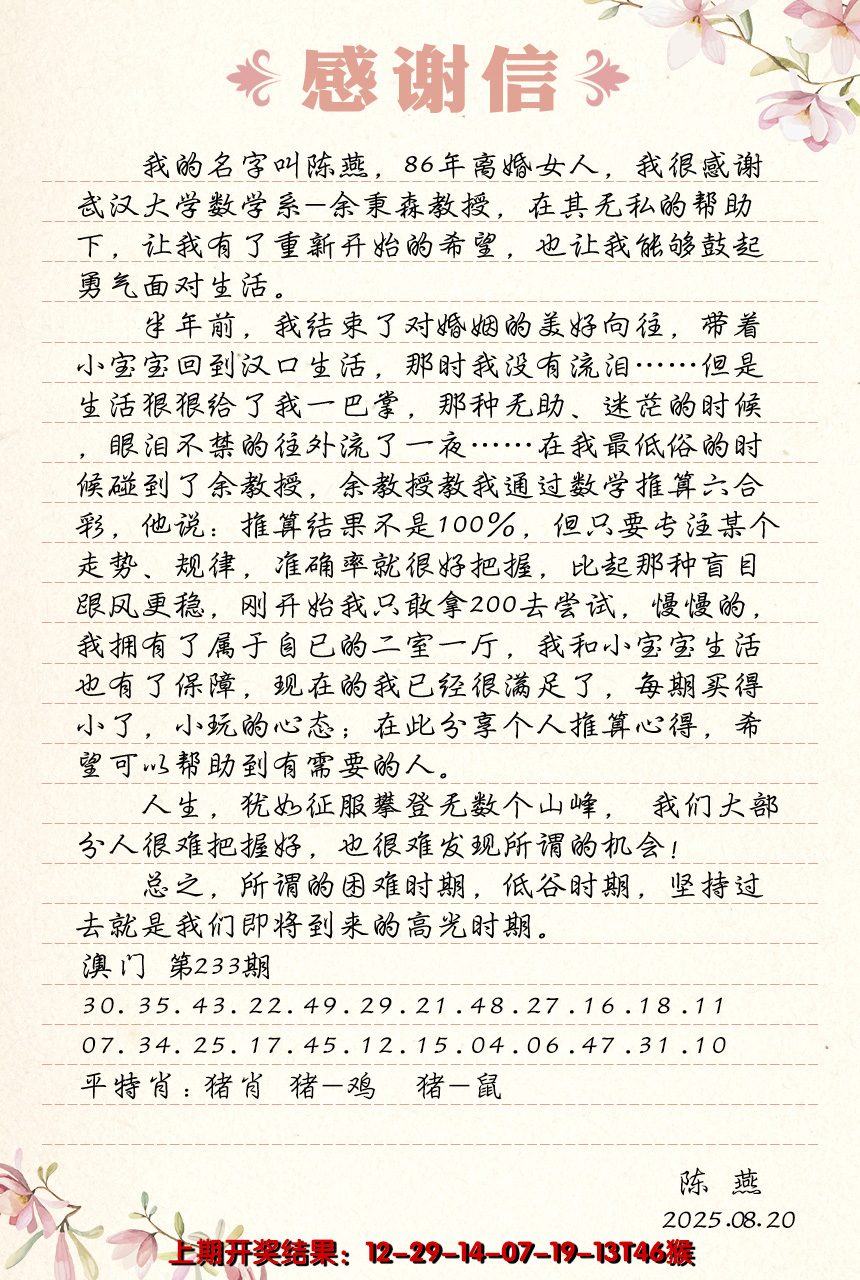 感谢信
我的名字叫陈燕，86年离婚女人，我很感谢
武汉大学数学系—余秉森教授，在其无私的帮助
下，让我有了重新开始的希望，也让我能够鼓起
勇气面对生活。
半年前，我结束了对婚姻的美好向往，带着
小宝宝回到汉口生活，那时我没有流泪……但是
生活狠狠给了我一巴掌，那种无助、迷茫的时候
，眼泪不禁的往外流了一夜……在我最低俗的时
候碰到了余教授，余教授教我通过数学推算六合
彩，他说：推算结果不是100%，但只要专注某个
走势、规律，准确率就很好把握，比起那种盲目
跟风更稳，刚开始我只敢拿200去尝试，慢慢的，
我拥有了属于自已的二室一厅，我和小宝宝生活
也有了保障，现在的我已经很满足了，每期买得
小了，小玩的心态；在此分享个人推算心得，希
望可以帮助到有需要的人。
人生，犹如征服攀登无数个山峰， 我们大部
分人很难把握好，也很难发现所谓的机会！
总之，所谓的困难时期，低谷时期，坚持过
去就是我们即将到来的高光时期。
澳门 第233期
30.35.43.22.49.29.21.48.27.16.18.11
07.34.25.17.45.12.15.04.06.47.31.10
平特肖：猪肖 猪—鸡 猪—鼠
陈 燕
2025.08.20
上期开奖结果：12-29-14-07-19-13T46猴